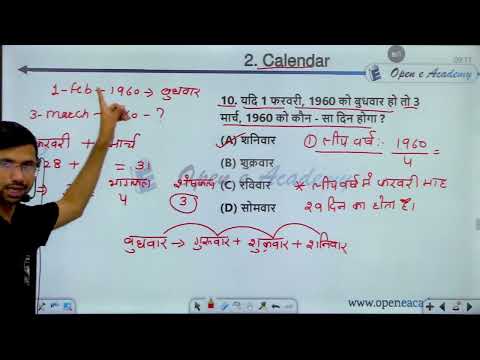 2. Calendar
09:11
Open e Academy
1-Feb - 1960 → बुधवार
3-march - 60 - ?
फरवरी + मार्च
28 + = 31
⇒ भागफल शेषफल
4 3
10. यदि 1 फरवरी, 1960 को बुधवार हो तो 3
मार्च, 1960 को कौन - सा दिन होगा ?
(A) शनिवार
(B) शुक्रवार
(C) रविवार
(D) सोमवार
① लीप वर्ष :- 1960
4 =
* लीप वर्ष में फरवरी माह
२९ दिन का होता है।
Open e Academy
बुधवार → गुरूवार + शुक्रवार + शनिवार
www.openeacad